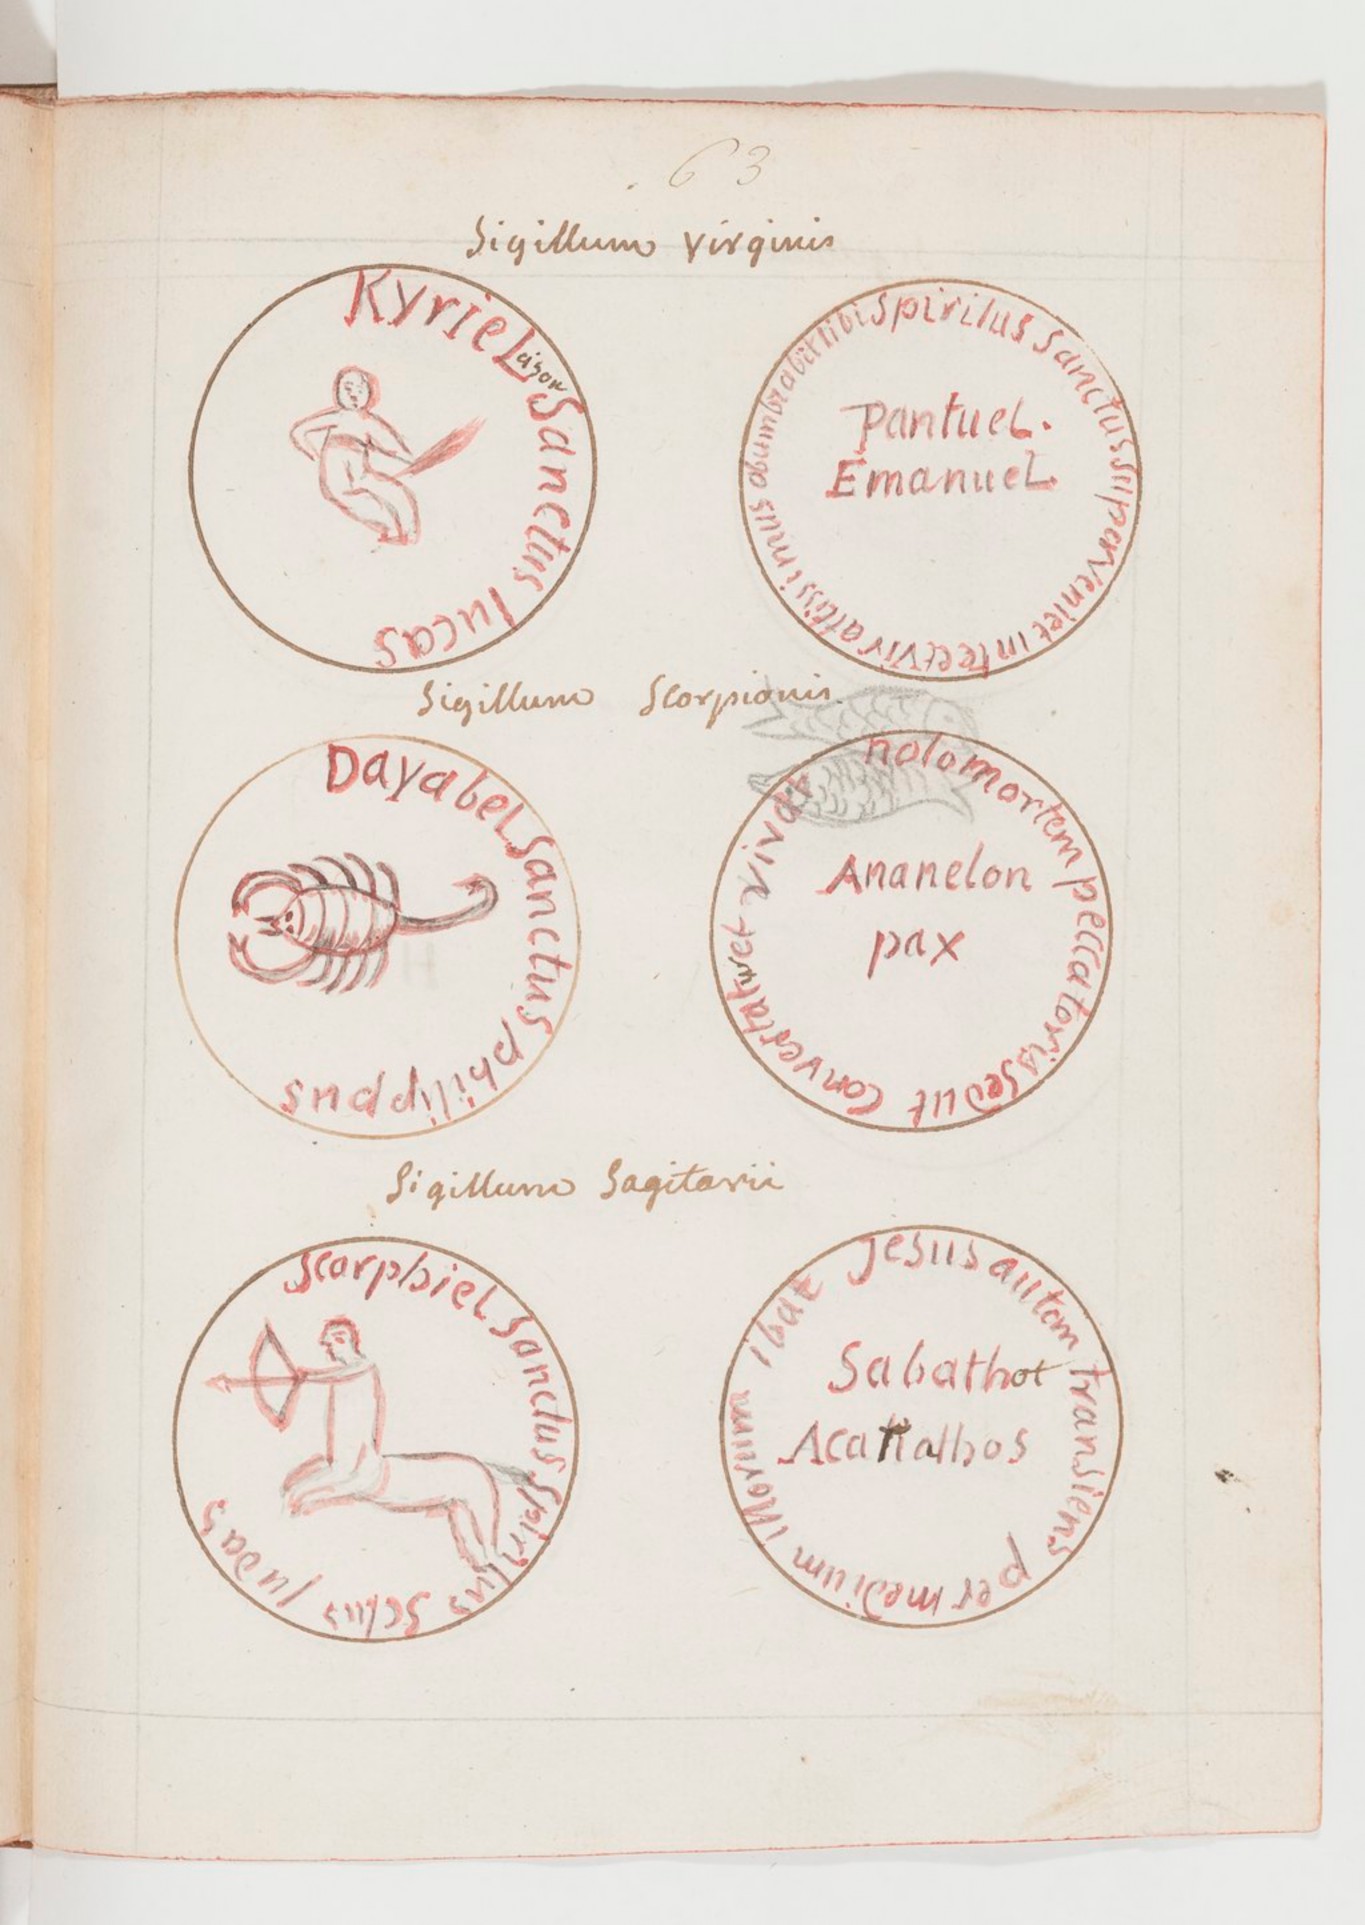 63
Sigillum virginis
Kyriel eison Sanctus lucas
Spiritus Sanctus superveniet in te et vir altissimus obumbrabit tibi
Pantuel.
Emanuel
Sigillum Scorpionis
Dayabel Sanctus philippus
nolo mortem peccatoris sed ut convertatur et vivat
Ananelon
pax
Sigillum Sagitarii
Scorphiel Sanctus Spiritus Sctus judas
Jesus autem transiens per medium illorum ibat
Sabathot